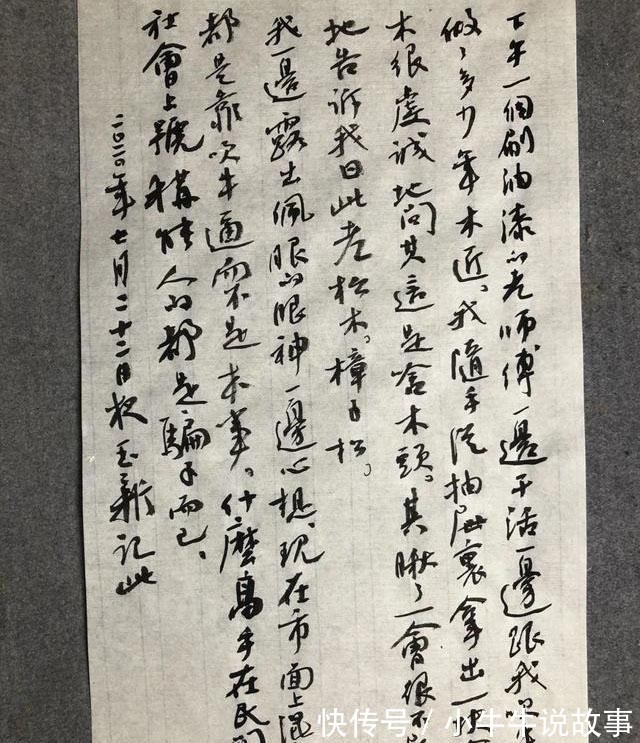 下午一個刷油漆的老师傅一邊干活一邊跟我
做了多少年木近。我隨手從抽屜裏拿出一块
木很虔诚地问其這是啥木頭。其瞅了一會很不
地告诉我曰此老松木。樟子松。
我一邊露出佩服的眼神一邊心想。現在市面上混
都是靠吹牛逼而不是本事。什麼高手在民间
社會上號稱能人的都是騙子而已。
二〇二〇年七月二十二日夜玉新记此
快传号/小牛牛说故事